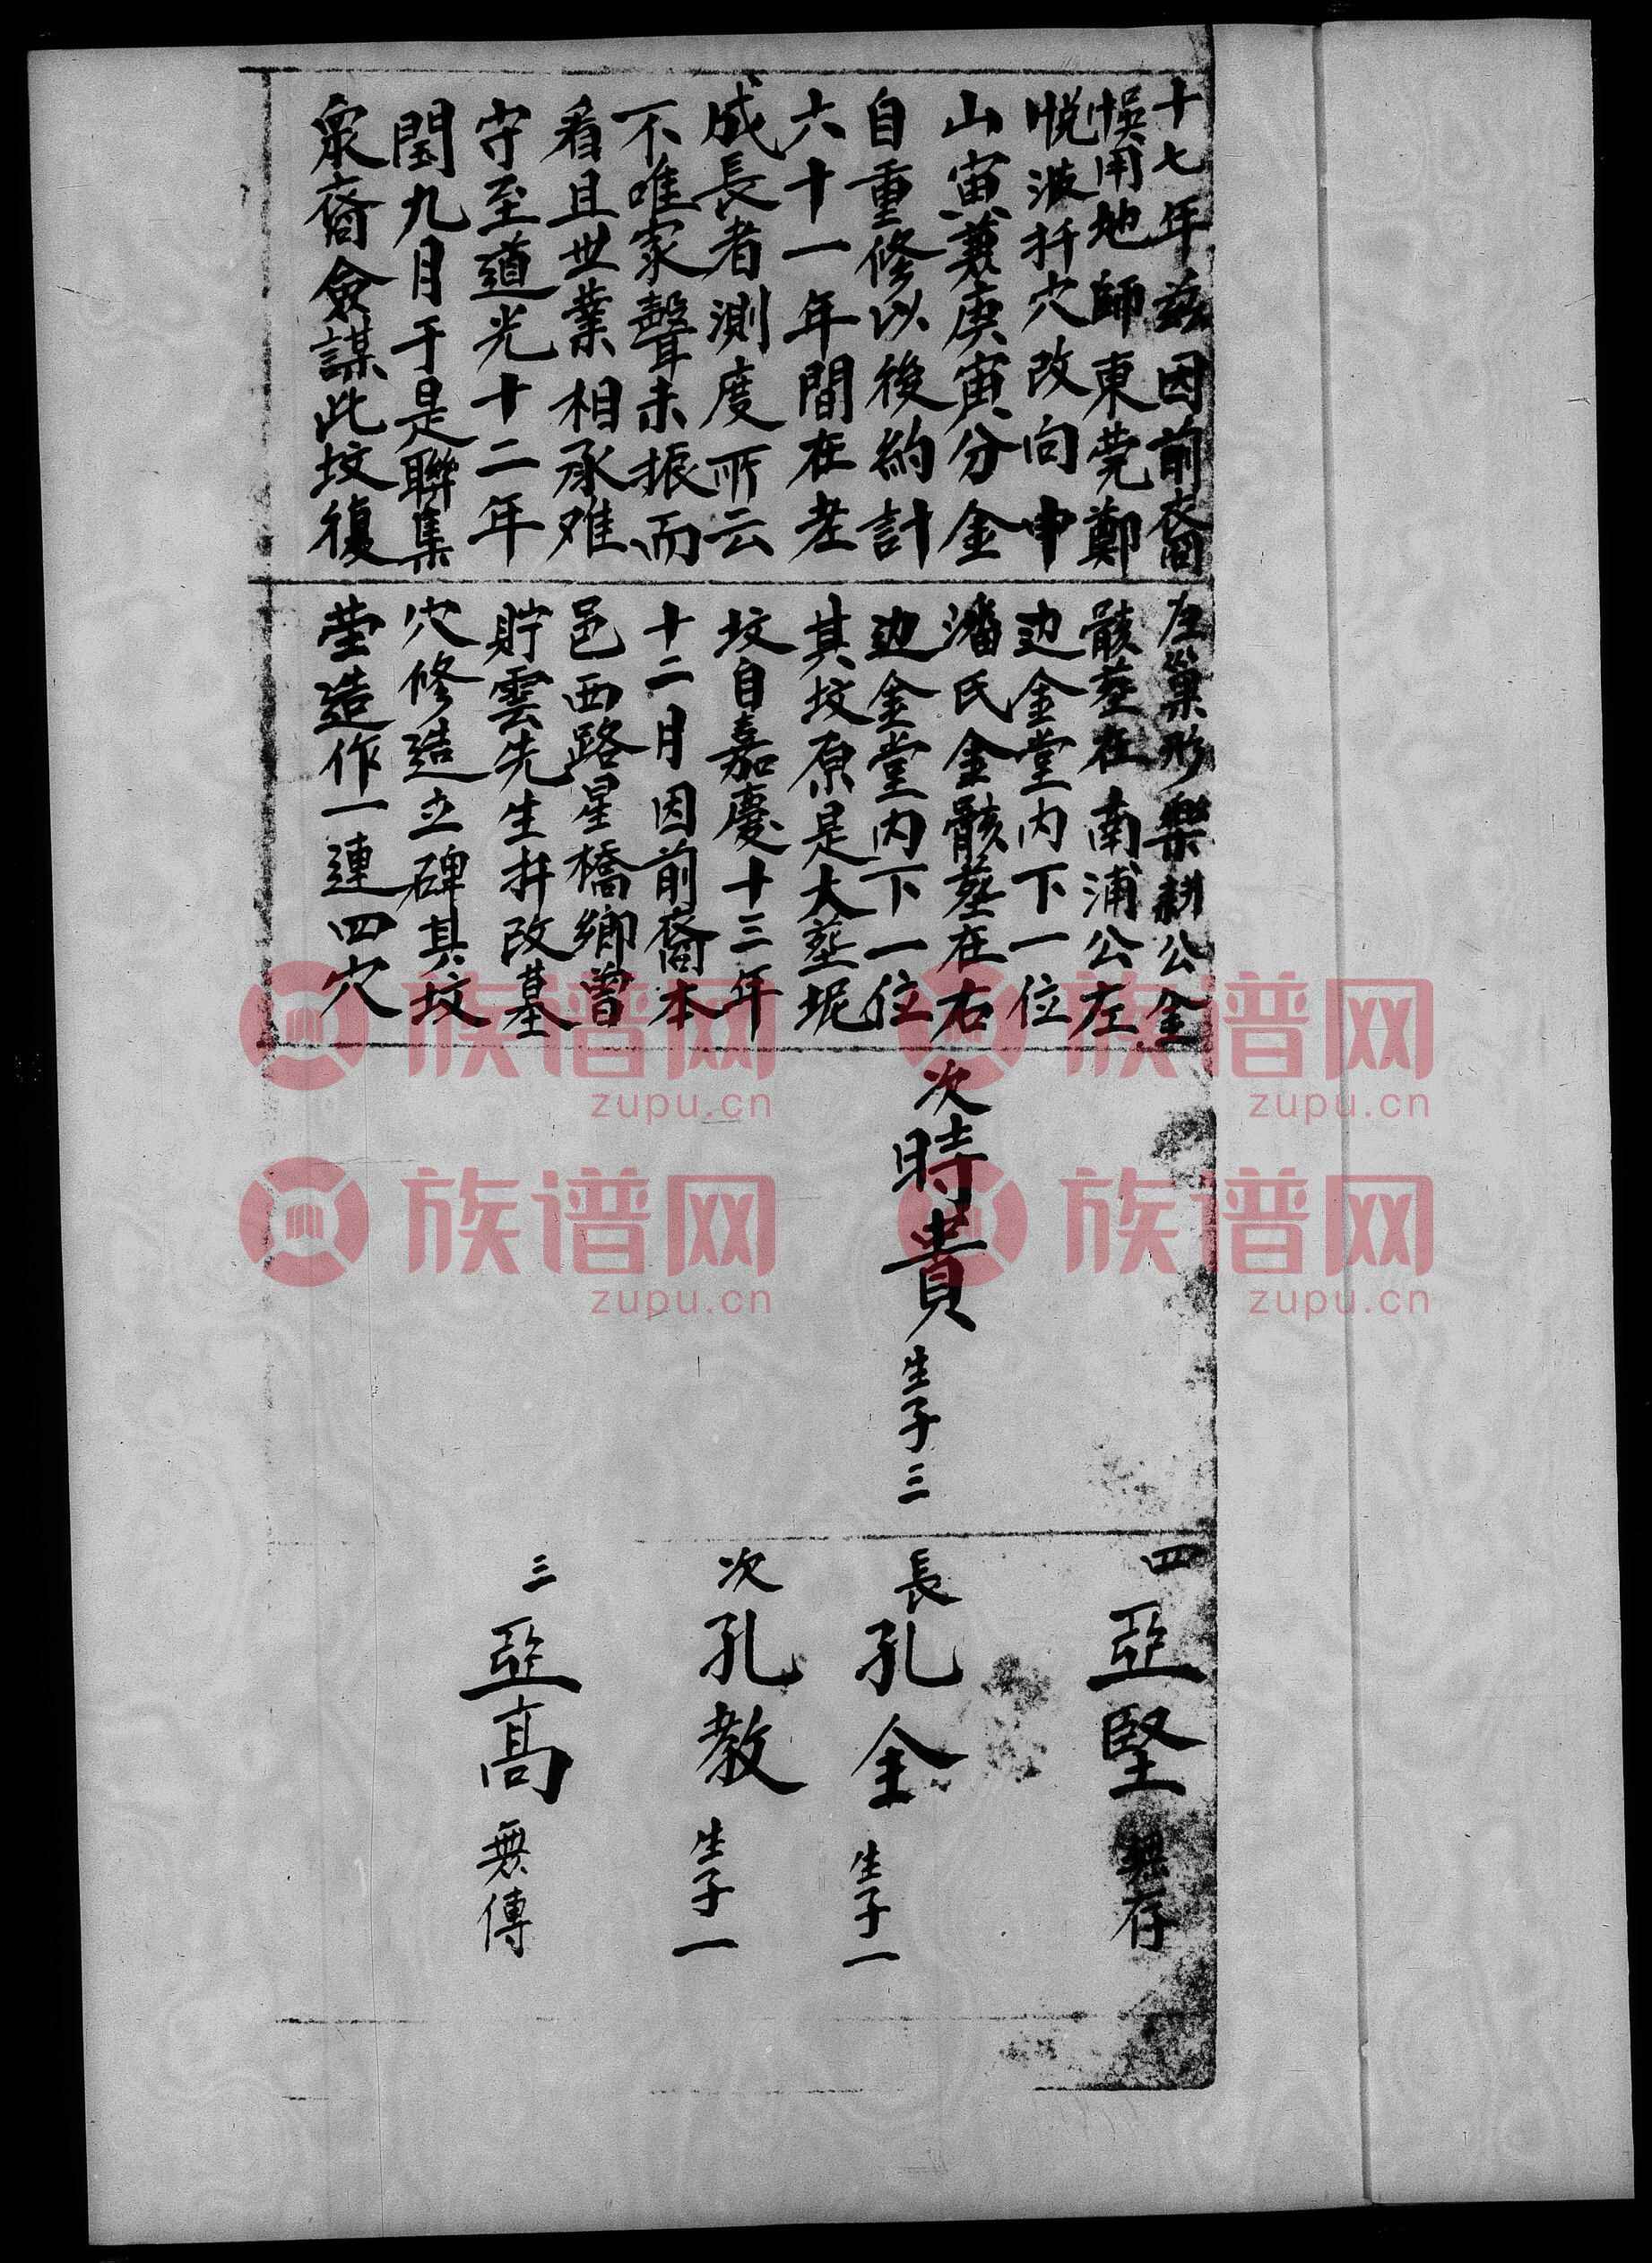 十七年茲因前裔
悞用地師東莞鄭
悅波扦穴改向申
山寅兼庚寅分金
自重修以後約計
六十一年間在老
成長者測度所云
不唯家聲未振而
看且世業相承难
守至道光十二年
閏九月于是聯集
衆裔僉謀此坟復
左巢形樂耕公金
骸葬在南浦公左
边金堂内下一位
潘氏金骸葬在右
边金堂内下一位
其坟原是大塟坭
坟自嘉慶十三年
十二月因前裔本
邑西路星橋鄉曾
貯雲先生扦改墓
穴修造立碑其坟
塋造作一連四穴
次時貴生子三
四亞堅無存
長孔金生子一
次孔教生子一
三亞高無傳
族谱网
zupu.cn
族谱网
zupu.cn
族谱网
zupu.cn
族谱网
zupu.cn